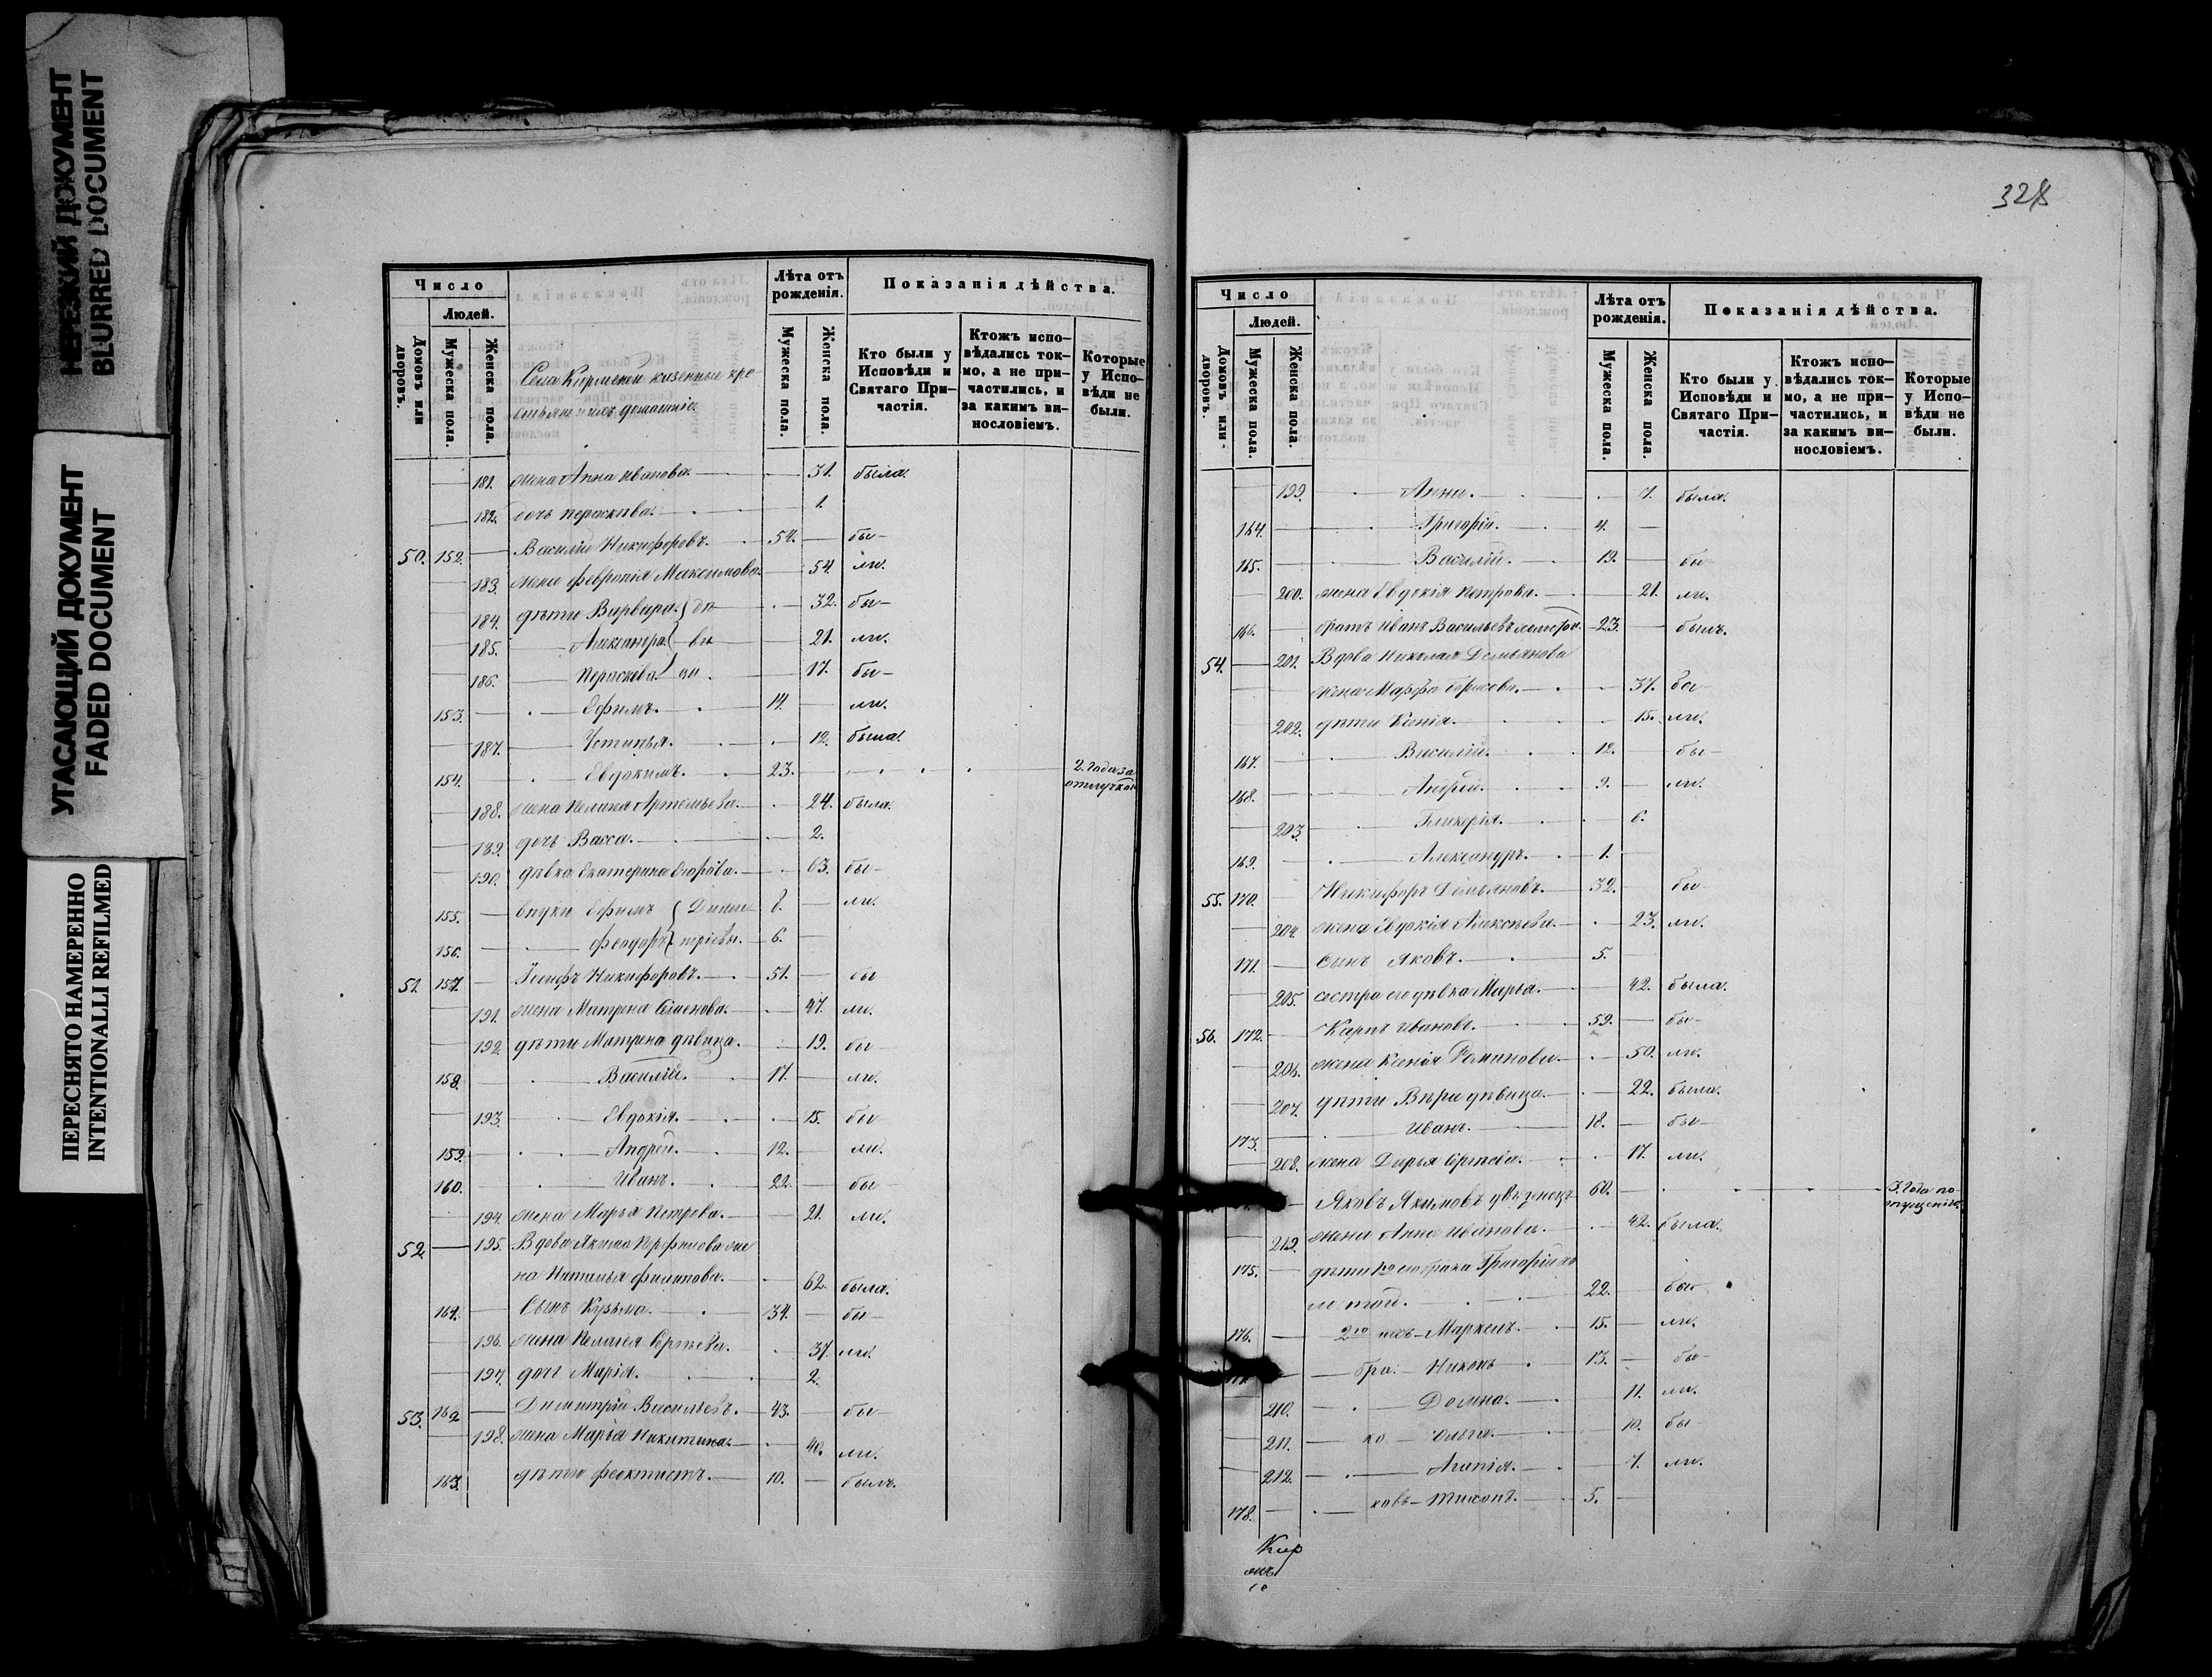 НЕРЕЗКИЙ ДОКУМЕНТ
BLURRED DOCUMENT
УГАСАЮЩИЙ ДОКУМЕНТ
FADED DOCUMENT
ПЕРЕСНЯТО НАМЕРЕННО
INTENTIONALI REFILMED
Число
Людей.
Домовъ или дворовъ.
Мужеска пола.
Женска пола.
Села казенные кре-
стьяне и ихъ домашніе.
Лѣта отъ рожденія.
Мужеска пола.
Женска пола.
Показанія дѣйства.
Кто были у Исповѣди и Святаго При-частія.
Ктожъ испо-вѣдались ток-мо, а не при-частились, и за какимъ ви-нословіемъ.
Которые у Испо-вѣди не были.
181. жена Анна Иванова. 31. была.
182. дочь Параскева. 1.
50. 152. Василій Никифоровъ. 54. бы-
183. жена Февронія Максимова. 54. ли.
184. дѣти Варвара } дѣ 32. бы-
185. Александра } ви 21. ли.
186. Параскева } цы 17. бы-
153. Ефимъ. 14. ли.
187. Устинья. 12. была.
154. Евдокимъ. 23. 2. года за отлучкой
188. жена Пелагея Артемьева. 24. была.
189. дочь Васса. 2.
190. дѣвка Екатерина Егорова. 63. бы-
155. внуки Ефимъ { Димит- 8. ли.
156. Феодоръ } тріевы. 6.
51. 157. Іосифъ Никифоровъ. 51. бы
191. жена Матрена Семенова. 47. ли.
192. дѣти Матрена дѣвица. 19. бы
158. Василій. 17. ли.
193. Евдокія. 15. бы
159. Андрей. 12. ли.
160. Иванъ. 22. бы
194. жена Марья Петрова. 21. ли.
52. 195. Вдова Якима Перфилова же-
на Наталья Филипова. 62. была.
161. Сынъ Кузьма. 34. бы-
196. жена Пелагея Сергѣева. 37. ли.
197. дочь Марія. 2.
53. 162. Димитрій Васильевъ. 43. бы-
198. жена Марья Никитина. 40. ли.
163. дѣти Феоктистъ. 10. былъ.
328
Число
Людей.
Домовъ или дворовъ.
Мужеска пола.
Женска пола.
Лѣта отъ рожденія.
Мужеска пола.
Женска пола.
Показанія дѣйства.
Кто были у Исповѣди и Святаго При-частія.
Ктожъ испо-вѣдались ток-мо, а не при-частились, и за какимъ ви-нословіемъ.
Которые у Испо-вѣди не были.
199. Анна. 7. была.
164. Григорій. 4.
165. Василій. 19. бы-
200. жена Евдокія Петрова. 21. ли.
166. братъ Иванъ Васильевъ 23. былъ.
54. 201. Вдова Николая Демьянова
жена Марфа Борисова. 37. бы-
202. дѣти Ксенія. 15. ли.
167. Василій. 12. бы-
168. Андрей. 9. ли.
203. Гликерія. 6.
169. Александръ. 1.
55. 170. Никифоръ Демьяновъ. 32. бы-
204. жена Евдокія Алексѣева. 23. ли.
171. Сынъ Яковъ. 5.
205. сестра его дѣвка Марья. 42. была.
56. 172. Карпъ Ивановъ. 59. бы-
206. жена Ксенія Романова. 50. ли.
207. дѣти Вѣра дѣвица. 22. была.
173. Иванъ. 18. бы-
208. жена Дарья Сергѣева. 17. ли.
Яковъ Якимовъ двуженецъ 60. 3. года по опущенію
219. жена Анна Иванова. 42. была.
175. дѣти 1го его брака Григорій хо-
лостой. 22. бы-
176. 2го Маркелъ. 15. ли.
бра. Никонъ. 13. бы-
210. Домна. 11. ли.
211. ко Ольга. 10. бы
212. Агапія. 7. ли.
178. ховъ Тихонъ. 5.